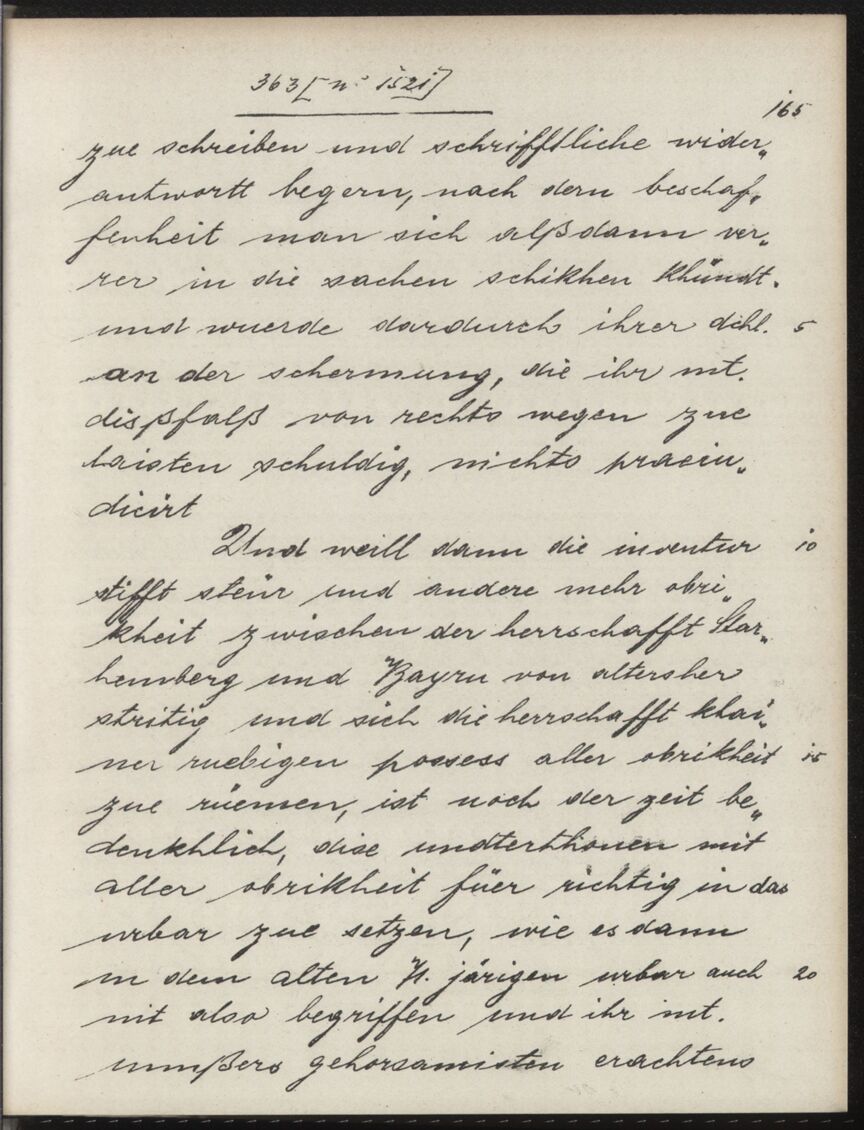 363 [nº 1521]
165
zue schreiben und schrifftliche wider„
antwortt begern, nach dern beschaf„
fenheit man sich alßdann ver„
rer in die sachen schikhen khündt.
und wuerde dardurch ihrer dchl. 5
an der schermung, die ihr mt.
dißfalß von rechts wegen zue
laisten schuldig, nichts praeiu„
dicirt
Und weill dann die inventur 10
stifft steür und andere mehr obri„
kheit zwischen der herrschafft Star„
hemberg und Bayrn von altersher
stritig und sich die herrschafft khai„
ner ruebigen possess aller obrikheit 15
zue rüemen, ist noch der zeit be„
denkhlich, dise undterthonen mit
aller obrikheit füer richtig in das
urbar zue setzen, wie es dann
in dem alten järigen urbar auch 20
nit also begriffen und ihr mt.
unnßers gehorsamisten erachtens